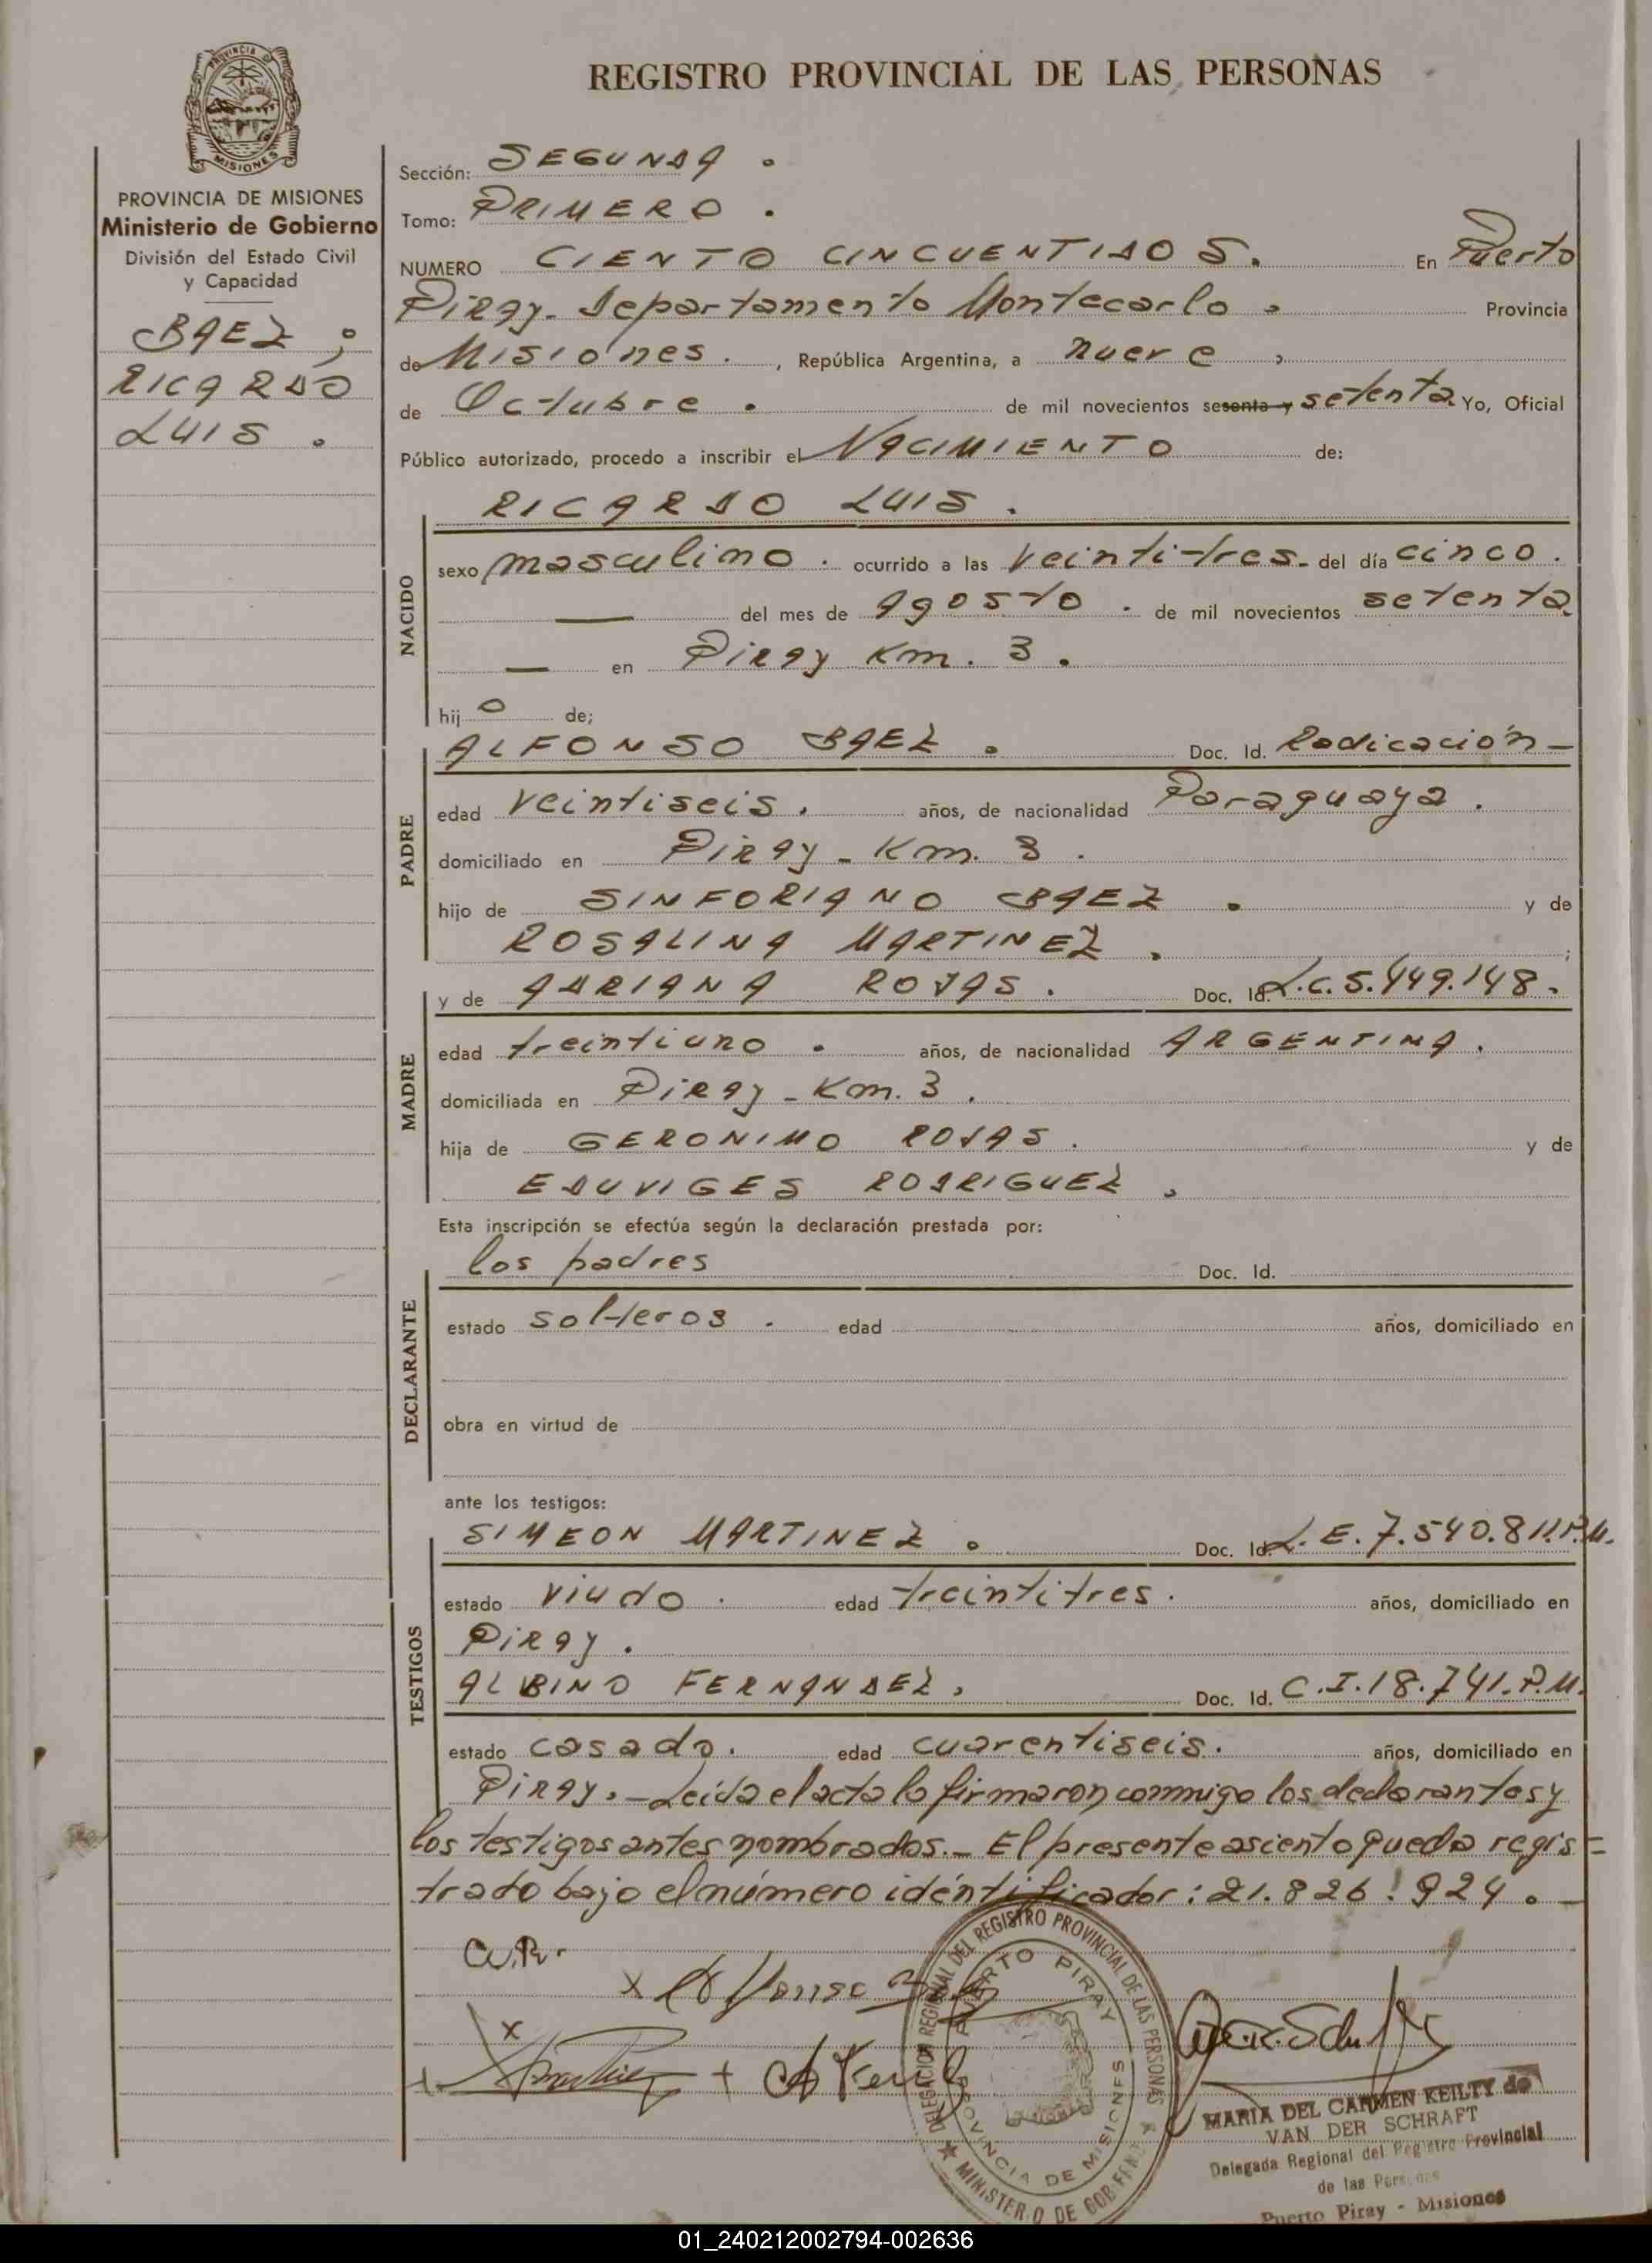 REGISTRO PROVINCIAL DE LAS PERSONAS
PROVINCIA
MISIONES
PROVINCIA DE MISIONES
Ministerio de Gobierno
División del Estado Civil
y Capacidad
BAEZ ;
RICARDO
LUIS .
Sección: SEGUNDA .
Tomo: PRIMERO .
NUMERO CIENTO CINCUENTIDOS. En Puerto
Piray. Departamento Montecarlo . Provincia
de Misiones . , República Argentina, a nueve ,
de Octubre . de mil novecientos sesenta y setenta Yo, Oficial
Público autorizado, procedo a inscribir el NACIMIENTO de:
RICARDO LUIS .
NACIDO
sexo masculino . ocurrido a las veintitres . del día cinco .
— del mes de Agosto . de mil novecientos setenta
— en Piray Km. 3 .
hijo de;
PADRE
ALFONSO BAEZ . Doc. Id. Radicación —
edad veintiseis . años, de nacionalidad Paraguaya .
domiciliado en Piray - Km. 3 .
hijo de SINFORIANO BAEZ . y de
ROSALINA MARTINEZ . ;
MADRE
y de ADRIANA ROJAS . Doc. Id. L.C. 5.449.148 .
edad treintiuno . años, de nacionalidad ARGENTINA .
domiciliada en Piray - Km. 3 .
hija de GERONIMO ROJAS . y de
EDUVIGES RODRIGUEZ ,
Esta inscripción se efectúa según la declaración prestada por:
DECLARANTE
los padres Doc. Id.
estado solteros . edad años, domiciliado en
obra en virtud de
ante los testigos:
TESTIGOS
SIMEON MARTINEZ . Doc. Id. L.E. 7.540.811.P.M.
estado viudo . edad treintitres . años, domiciliado en
Piray .
ALBINO FERNANDEZ . Doc. Id. C.I. 18.741.P.M.
estado casado . edad cuarentiseis . años, domiciliado en
Piray. - Leida el acta la firmaron conmigo los declarantes y
los testigos antes nombrados. - El presente asiento queda regis-
trado bajo el número idéntificador : 21.826.924 . -
Alfonso
DELEGACION REGIONAL DEL REGISTRO PROVINCIAL DE LAS PERSONAS
PUERTO PIRAY
PROVINCIA DE MISIONES
MINISTERIO DE GOBIERNO
MARIA DEL CARMEN KEILTY de
VAN DER SCHRAFT
Delegada Regional del Registro Provincial
de las Personas
Puerto Piray - Misiones
01_240212002794-002636